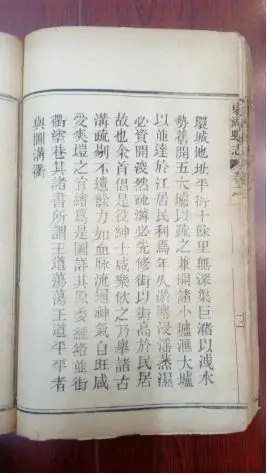 城地址平衍十餘里無深渠巨瀦以洩水
勢舊開五大墟以疏之兼開諸小墟滙大墟
以並達於江居民利焉年久淤塞浸潘蒸濕
必資開浚然疏溝必先修街以街高於民居
故也余首倡是役紳士咸樂攸之乃舉諸古
溝疏剔不遺餘力如血脈流通神氣自旺咸
愛爽塏之宜繪爲是圖詳其原委經絡並街
衢塗巷其諸書所謂王道蕩蕩王道平平者
與圖溝衢